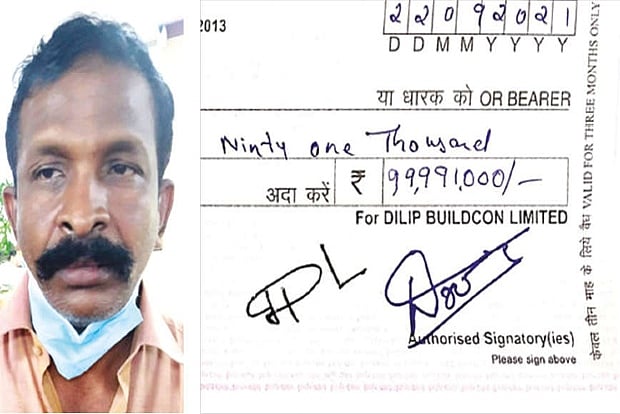 2013
22092021
DDMMYYYY
या धारक को OR BEARER
Ninty one Thousand
अदा करें ₹ 99,991,000/-
For DILIP BUILDCON LIMITED
Authorised Signatory(ies)
Please sign above
केवल तीन माह के लिये वैध VALID FOR THREE MONTHS ONLY